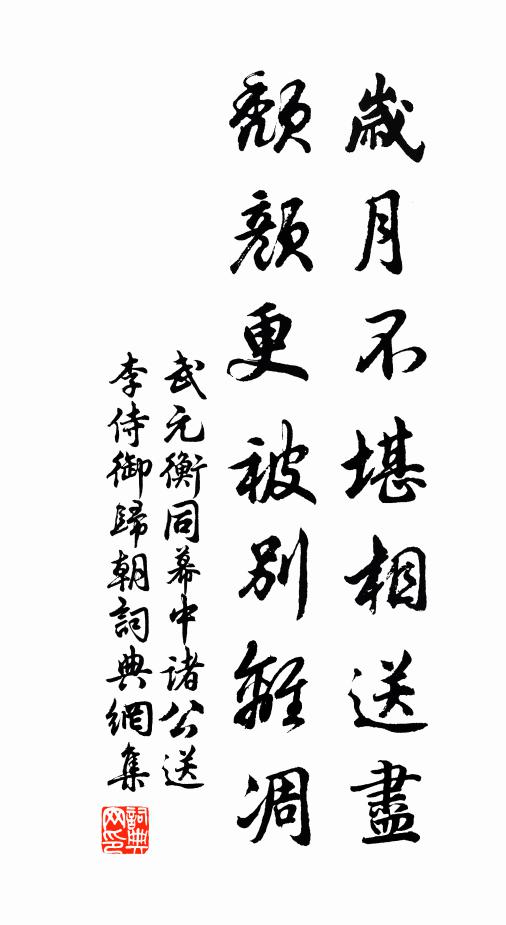 歲月不堪相送盡
頹顏更被別離凋
武元衡同幕中諸公送
李侍御歸朝詞典網集
詞典
网印